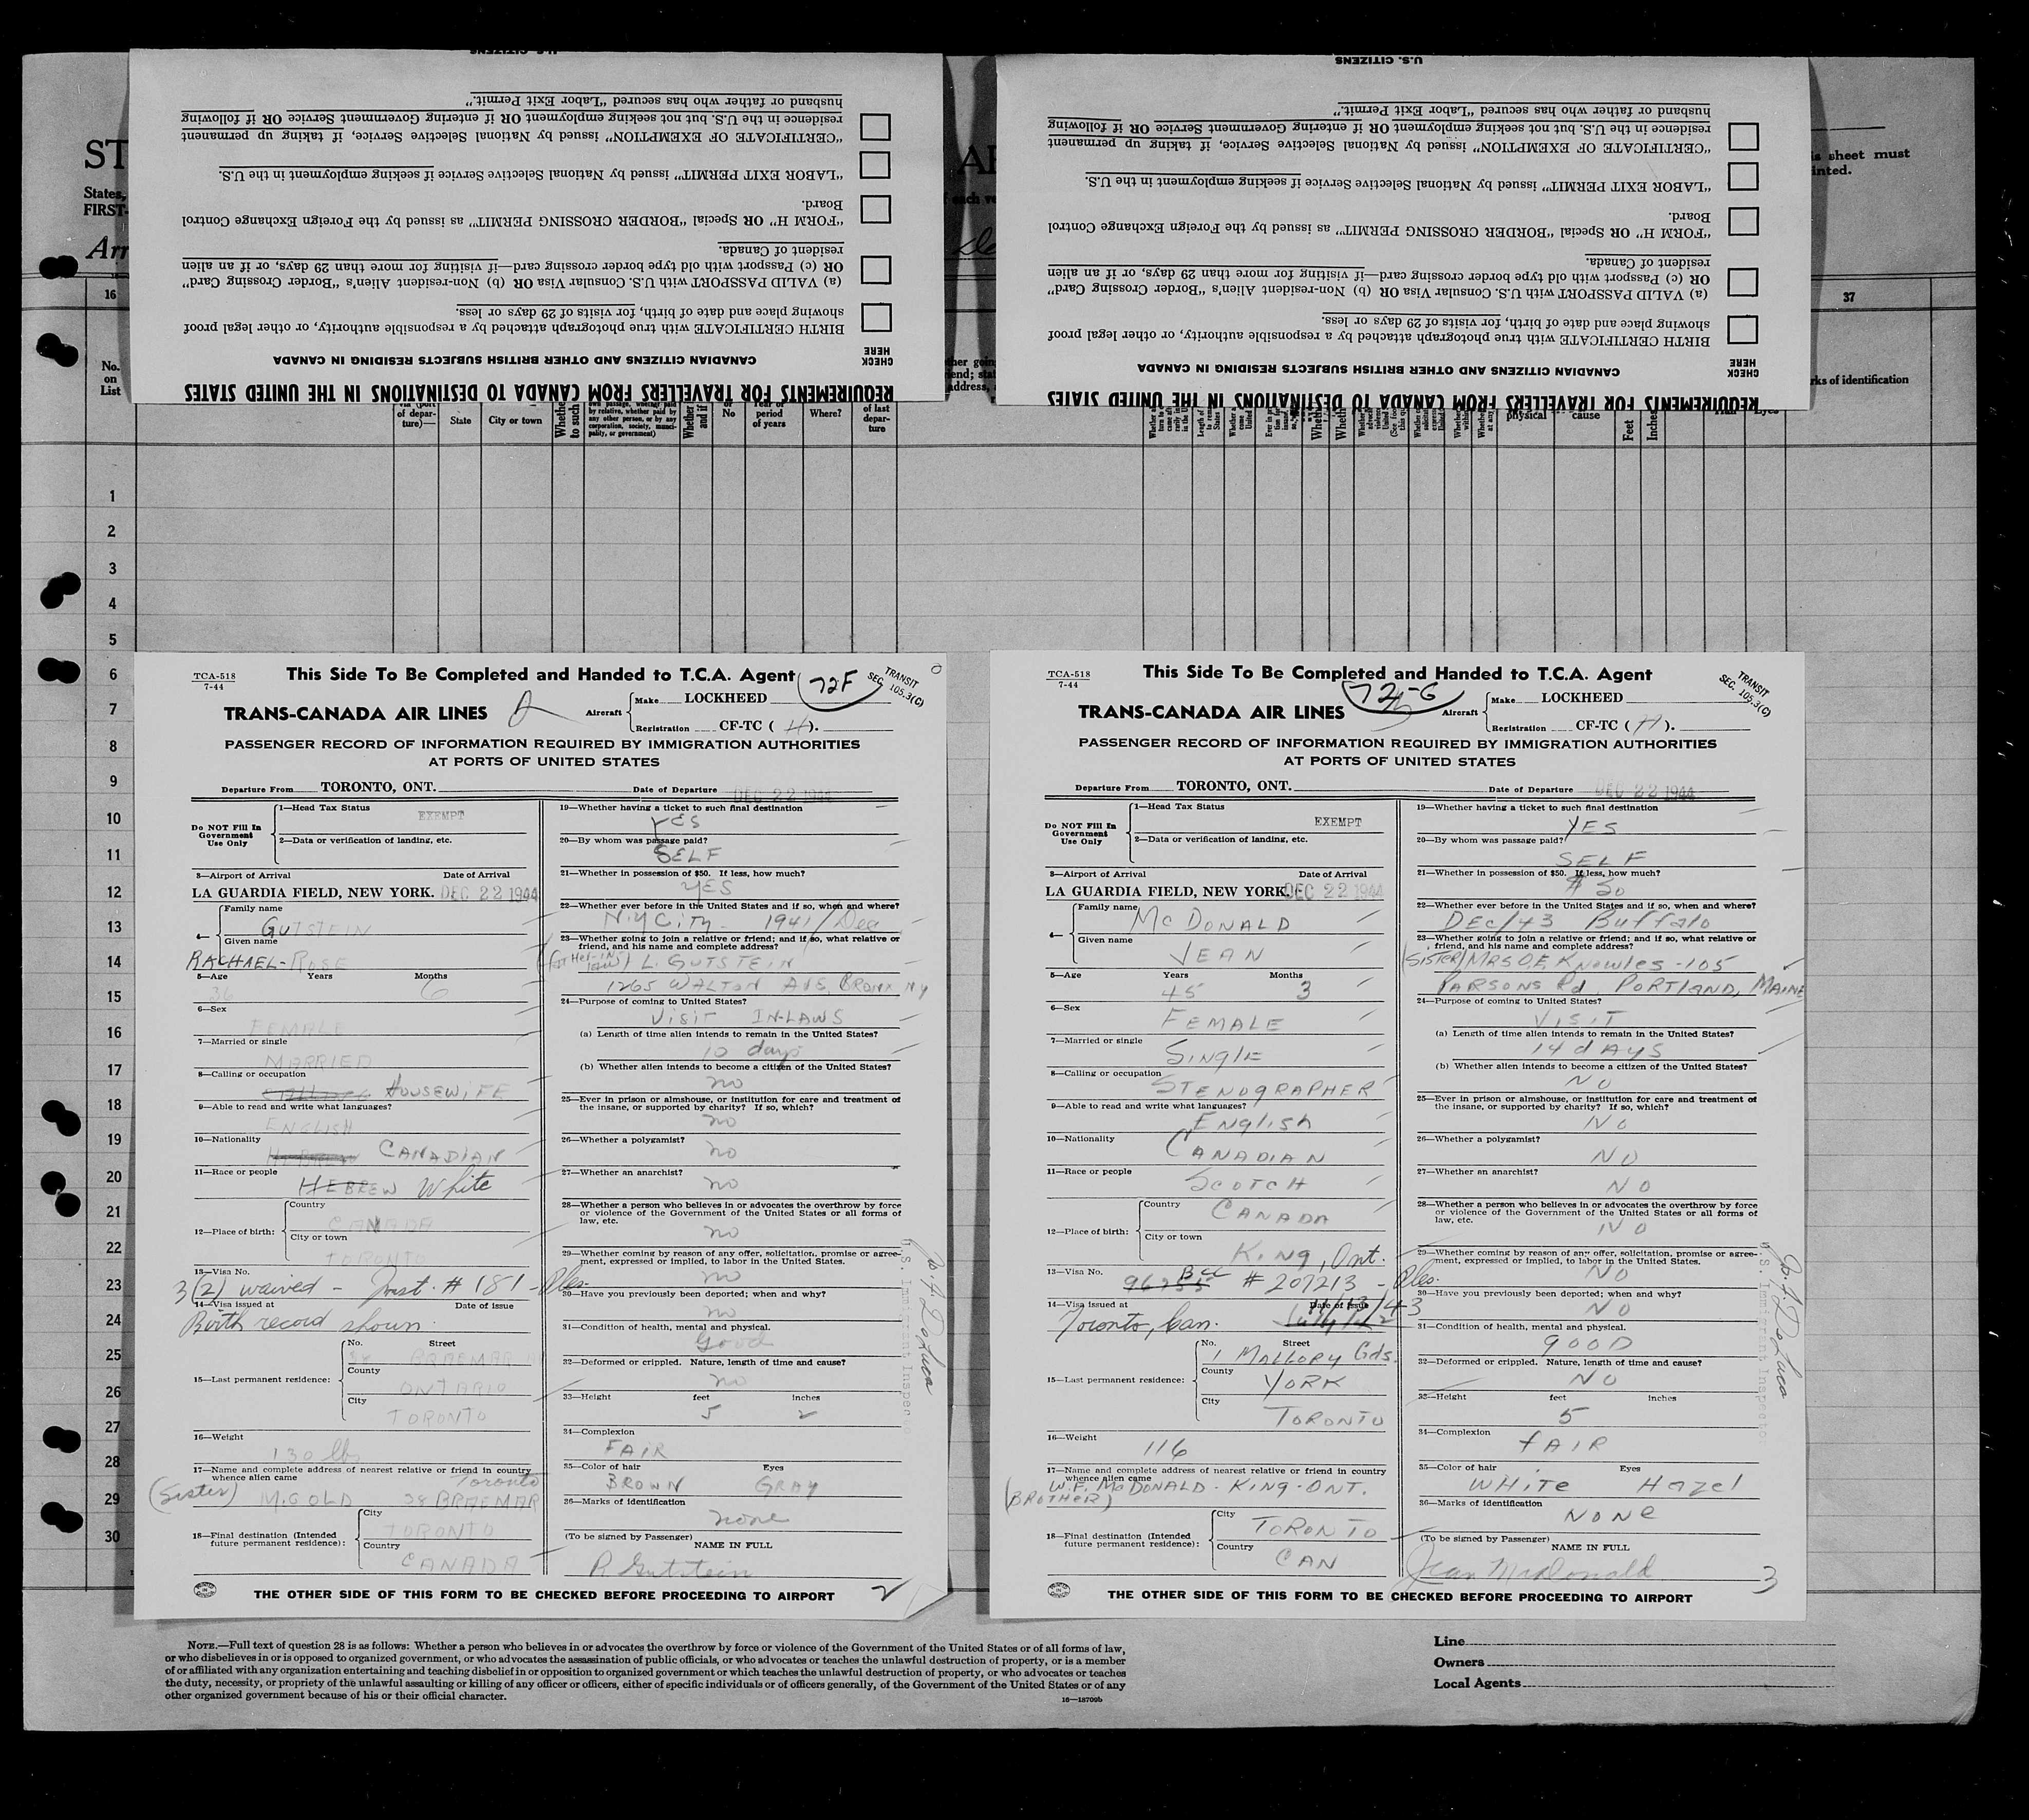 U.S. CITIZENS
husband or father who has secured "Labor Exit Permit."
residence in the U.S. but not seeking employment OR if entering Government Service OR if following
"CERTIFICATE OF EXEMPTION" issued by National Selective Service, if taking up permanent
"LABOR EXIT PERMIT" issued by National Selective Service if seeking employment in the U.S.
Board.
"FORM H" OR Special "BORDER CROSSING PERMIT" as issued by the Foreign Exchange Control
resident of Canada.
OR (c) Passport with old type border crossing card—if visiting for more than 29 days, or if an alien
(a) VALID PASSPORT with U.S. Consular Visa OR (b) Non-resident Alien's "Border Crossing Card"
showing place and date of birth, for visits of 29 days or less.
BIRTH CERTIFICATE with true photograph attached by a responsible authority, or other legal proof
CHECK HERE
CANADIAN CITIZENS AND OTHER BRITISH SUBJECTS RESIDING IN CANADA
REQUIREMENTS FOR TRAVELLERS FROM CANADA TO DESTINATIONS IN THE UNITED STATES
U.S. CITIZENS
husband or father who has secured "Labor Exit Permit."
residence in the U.S. but not seeking employment OR if entering Government Service OR if following
"CERTIFICATE OF EXEMPTION" issued by National Selective Service, if taking up permanent
"LABOR EXIT PERMIT" issued by National Selective Service if seeking employment in the U.S.
Board.
"FORM H" OR Special "BORDER CROSSING PERMIT" as issued by the Foreign Exchange Control
resident of Canada.
OR (c) Passport with old type border crossing card—if visiting for more than 29 days, or if an alien
(a) VALID PASSPORT with U.S. Consular Visa OR (b) Non-resident Alien's "Border Crossing Card"
showing place and date of birth, for visits of 29 days or less.
BIRTH CERTIFICATE with true photograph attached by a responsible authority, or other legal proof
CHECK HERE
CANADIAN CITIZENS AND OTHER BRITISH SUBJECTS RESIDING IN CANADA
REQUIREMENTS FOR TRAVELLERS FROM CANADA TO DESTINATIONS IN THE UNITED STATES
ST
States,
FIRST-
Arr
sheet must
inted.
16
37
No.
on
List
rks of identification
of depar-
ture)—
State
City or town
No
period
of years
Where?
of last
depar-
ture
physical
cause
Feet
Inches
1
2
3
4
5
6
7
8
9
10
11
12
13
14
15
16
17
18
19
20
21
22
23
24
25
26
27
28
29
30
TCA-518
7-44
This Side To Be Completed and Handed to T.C.A. Agent
72F
TRANSIT
SEC. 105.3(C)
TRANS-CANADA AIR LINES
Aircraft
Make LOCKHEED
Registration CF-TC ( H ).
PASSENGER RECORD OF INFORMATION REQUIRED BY IMMIGRATION AUTHORITIES
AT PORTS OF UNITED STATES
Departure From TORONTO, ONT. Date of Departure DEC 22 1944
Do NOT Fill In
Government
Use Only
1—Head Tax Status
EXEMPT
2—Data or verification of landing, etc.
3—Airport of Arrival Date of Arrival
LA GUARDIA FIELD, NEW YORK. DEC 22 1944
4—
Family name
GUTSTEIN
Given name
RACHAEL-ROSE
5—Age Years Months
36 6
6—Sex
FEMALE
7—Married or single
MARRIED
8—Calling or occupation
HOUSEWIFE
9—Able to read and write what languages?
ENGLISH
10—Nationality
HEBREW CANADIAN
11—Race or people
HEBREW White
12—Place of birth:
Country
CANADA
City or town
TORONTO
13—Visa No.
3(2) waived - Inst. # 181 -
14—Visa issued at Date of issue
Birth record shown.
15—Last permanent residence:
No. Street
38 BRAEMAR
County
ONTARIO
City
TORONTO
16—Weight
130 lbs
17—Name and complete address of nearest relative or friend in country
whence alien came Toronto
(Sister) M. GOLD 38 BRAEMAR
18—Final destination (Intended
future permanent residence):
City
TORONTO
Country
CANADA
19—Whether having a ticket to such final destination
YES
20—By whom was passage paid?
SELF
21—Whether in possession of $50. If less, how much?
YES
22—Whether ever before in the United States and if so, when and where?
N.Y City - 1941/Dec
23—Whether going to join a relative or friend; and if so, what relative or
friend, and his name and complete address?
L. GUTSTEIN
1265 WALTON AVE, BRONX NY
24—Purpose of coming to United States?
VISIT IN-LAWS
(a) Length of time alien intends to remain in the United States?
10 days
(b) Whether alien intends to become a citizen of the United States?
no
25—Ever in prison or almshouse, or institution for care and treatment of
the insane, or supported by charity? If so, which?
no
26—Whether a polygamist?
no
27—Whether an anarchist?
no
28—Whether a person who believes in or advocates the overthrow by force
or violence of the Government of the United States or all forms of
law, etc.
no
29—Whether coming by reason of any offer, solicitation, promise or agree-
ment, expressed or implied, to labor in the United States.
no
30—Have you previously been deported; when and why?
no
31—Condition of health, mental and physical.
Good
32—Deformed or crippled. Nature, length of time and cause?
no
33—Height feet inches
5 2
34—Complexion
FAIR
35—Color of hair Eyes
BROWN GRAY
36—Marks of identification
none
(To be signed by Passenger)
NAME IN FULL
R. Gutstein
U.S. Immigrant Inspector
THE OTHER SIDE OF THIS FORM TO BE CHECKED BEFORE PROCEEDING TO AIRPORT
2
TCA-518
7-44
This Side To Be Completed and Handed to T.C.A. Agent
72-G
TRANSIT
SEC. 105.3(C)
TRANS-CANADA AIR LINES
Aircraft
Make LOCKHEED
Registration CF-TC ( H ).
PASSENGER RECORD OF INFORMATION REQUIRED BY IMMIGRATION AUTHORITIES
AT PORTS OF UNITED STATES
Departure From TORONTO, ONT. Date of Departure DEC 22 1944
Do NOT Fill In
Government
Use Only
1—Head Tax Status
EXEMPT
2—Data or verification of landing, etc.
3—Airport of Arrival Date of Arrival
LA GUARDIA FIELD, NEW YORK. DEC 22 1944
4—
Family name
McDONALD
Given name
JEAN
5—Age Years Months
45 3
6—Sex
FEMALE
7—Married or single
SINGLE
8—Calling or occupation
STENOGRAPHER
9—Able to read and write what languages?
English
10—Nationality
CANADIAN
11—Race or people
SCOTCH
12—Place of birth:
Country
CANADA
City or town
KING, Ont.
13—Visa No.
BCC # 207213 -
14—Visa issued at Date of issue
Toronto, Can.
15—Last permanent residence:
No. Street
1 MALLORY Gds.
County
YORK
City
TORONTO
16—Weight
116
17—Name and complete address of nearest relative or friend in country
whence alien came
W.F. McDONALD - KING - ONT.
(BROTHER)
18—Final destination (Intended
future permanent residence):
City
TORONTO
Country
CAN
19—Whether having a ticket to such final destination
YES
20—By whom was passage paid?
SELF
21—Whether in possession of $50. If less, how much?
22—Whether ever before in the United States and if so, when and where?
DEC/43 Buffalo
23—Whether going to join a relative or friend; and if so, what relative or
friend, and his name and complete address?
(SISTER) MRS O.E. KNOWLES - 105
PARSONS Rd. PORTLAND, MAINE
24—Purpose of coming to United States?
VISIT
(a) Length of time alien intends to remain in the United States?
14 dAYS
(b) Whether alien intends to become a citizen of the United States?
NO
25—Ever in prison or almshouse, or institution for care and treatment of
the insane, or supported by charity? If so, which?
NO
26—Whether a polygamist?
NO
27—Whether an anarchist?
NO
28—Whether a person who believes in or advocates the overthrow by force
or violence of the Government of the United States or all forms of
law, etc.
NO
29—Whether coming by reason of any offer, solicitation, promise or agree-
ment, expressed or implied, to labor in the United States.
NO
30—Have you previously been deported; when and why?
NO
31—Condition of health, mental and physical.
GOOD
32—Deformed or crippled. Nature, length of time and cause?
NO
33—Height feet inches
5
34—Complexion
FAIR
35—Color of hair Eyes
WHITE Hazel
36—Marks of identification
NONE
(To be signed by Passenger)
NAME IN FULL
Jean McDonald
U.S. Immigrant Inspector
THE OTHER SIDE OF THIS FORM TO BE CHECKED BEFORE PROCEEDING TO AIRPORT
3
NOTE.—Full text of question 28 is as follows: Whether a person who believes in or advocates the overthrow by force or violence of the Government of the United States or of all forms of law,
or who disbelieves in or is opposed to organized government, or who advocates the assassination of public officials, or who advocates or teaches the unlawful destruction of property, or is a member
of or affiliated with any organization entertaining and teaching disbelief in or opposition to organized government or which teaches the unlawful destruction of property, or who advocates or teaches
the duty, necessity, or propriety of the unlawful assaulting or killing of any officer or officers, either of specific individuals or of officers generally, of the Government of the United States or of any
other organized government because of his or their official character.
16—18709b
Line
Owners
Local Agents